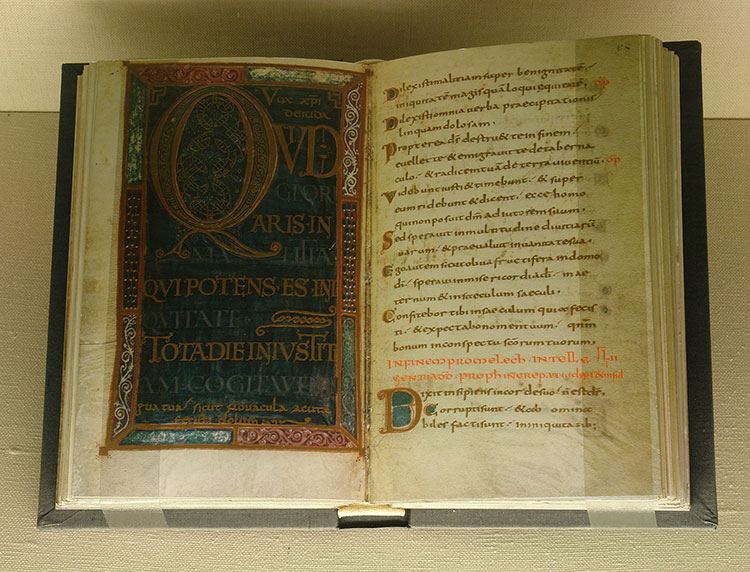 Vox xpi
de iuda
QVID
GLORI
ARIS·IN
MALITIA
QVI POTENS·ES·INI
QVITATE
TOTA DIE INIVSTIT
IAM·COGITAVIT
gua tua sicut novacula acuta
Dilexisti malitiam super benignitatē
iniquitatē magis quā loqui equitatē
Dilexisti omnia verba praecipitationis
linguam dolosam.
Propterea ds destruet te in finem
evellet te & emigravit te de taberna
culo· & radicem tuā de terra viventiū
Videbunt iusti & timebunt· & super
eum ridebunt & dicent· ecce homo
qui non posuit dm adiutorem suum·
Sed speravit in multitudine divitiarū
suarum· & praevaluit in vanitate sua·
Ego autem sicut oliva fructifera in domo
di· speravi in misericordia di· in ae
ternum & in saeculum saeculi·
Confitebor tibi in saeculum quia fecis
ti· & expectabo nomen tuum· qnm
bonum in conspectu scōrum tuorum·
IN FINEM PRO MELECH·INTELL
Dixit insipiens in corde suo· n est ds·
Corrupti sunt· & abomina
biles facti sunt· in iniquitatib;